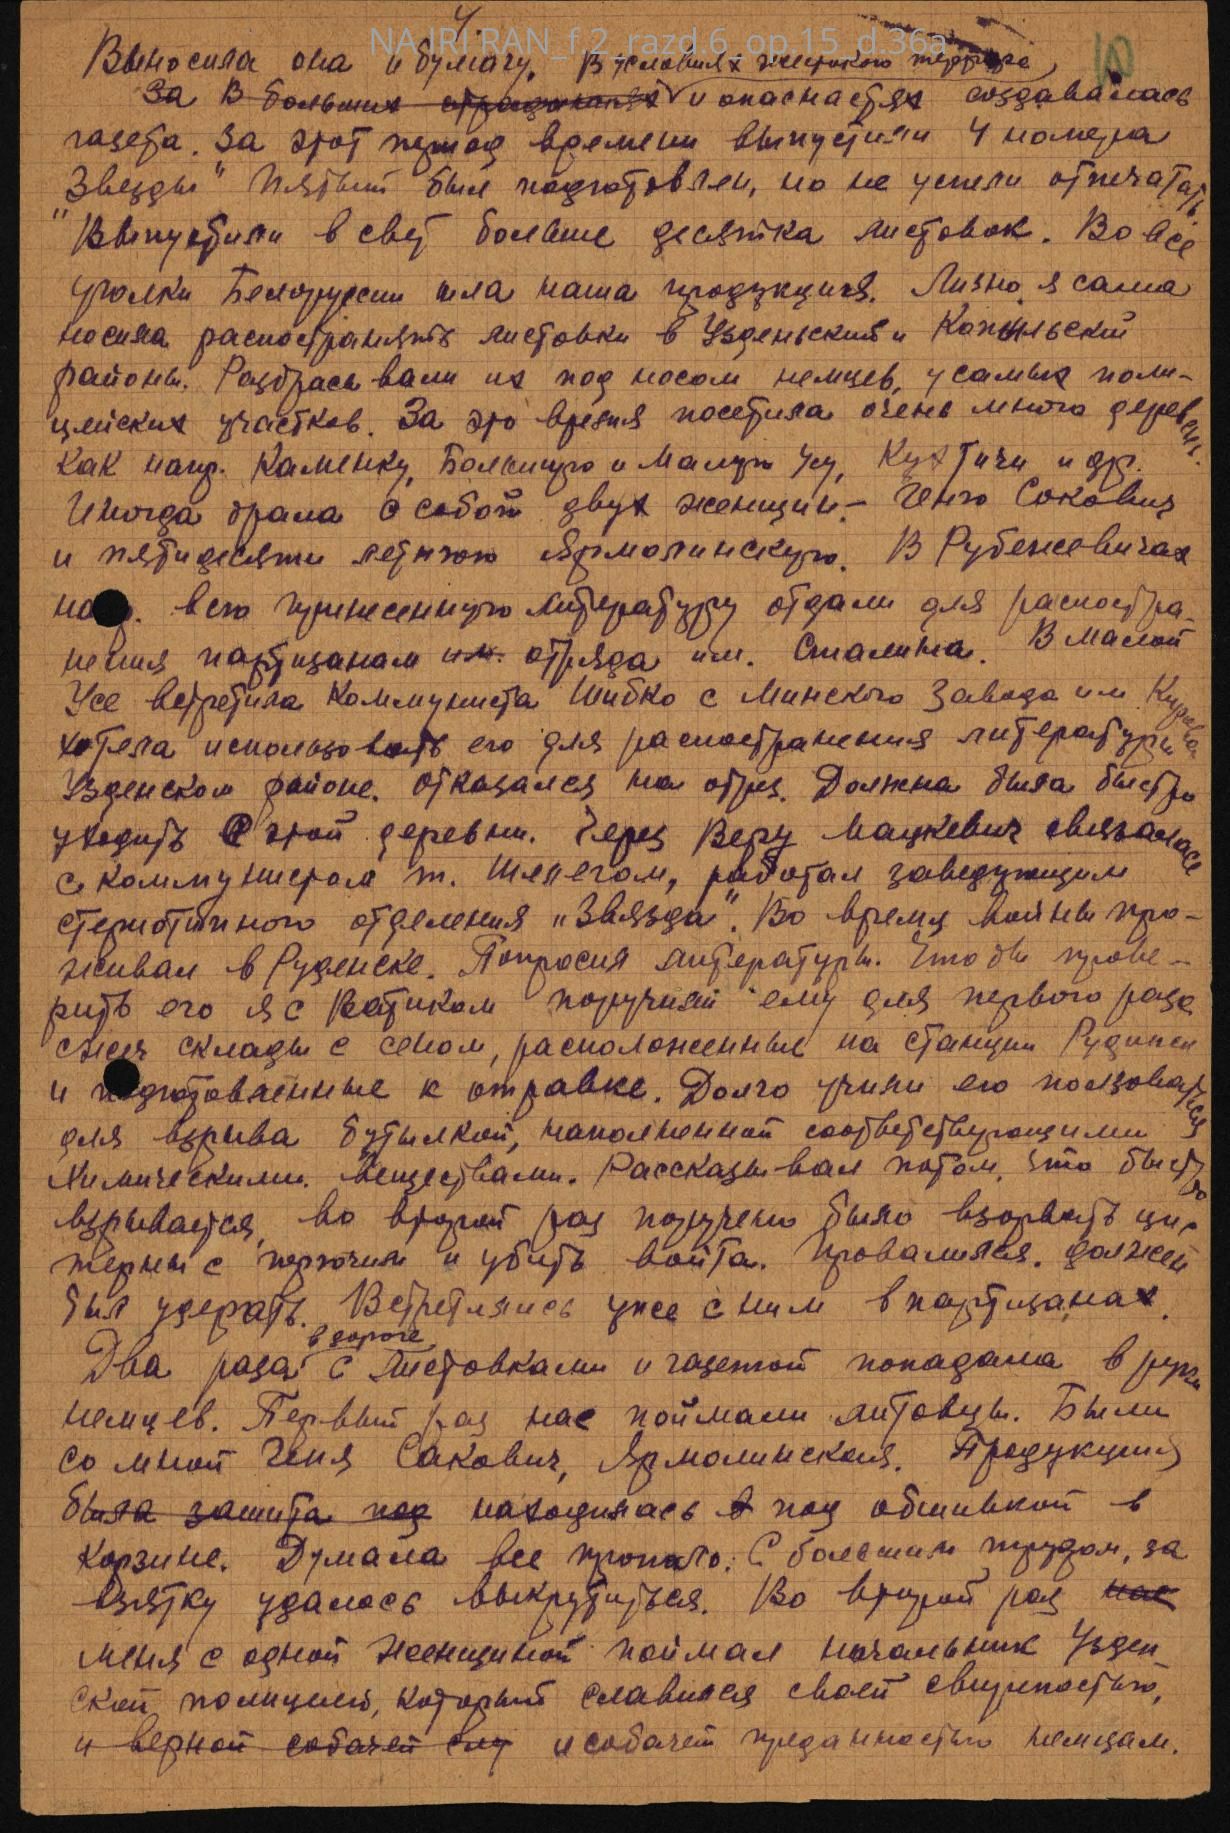 4.
NA IRI RAN_f.2_razd.6_op.15_d.36a
10
Выносила она и бумагу. В условиях жестокого террора
За В больших и опасностях создавалась
газета. За этот период времени выпустили 4 номера
"Звезды" Пятый был подготовлен, но не успели отпечатать.
Выпустили в свет больше десятка листовок. Во все
уголки Белоруссии шла наша продукция. Лично я сама
носила распостранять листовки в Узденьский и Копыльский
районы. Разбрасывали их под носом немцев, у самых поли-
цейских участков. За это время посетила очень много деревень.
как напр. Каменку, Большую и Малую Усу, Кухтичи и др.
Иногда брала с собой двух женщин – Геню Сокович
и пятидесяти летнюю Ярмолинскую. В Рубежевичах
всю принесенную литературу отдали для распостра-
нения партизанам им. отряда им. Сталина. В Малой
Усе встретила коммуниста Шибко с Минского завода им
хотела использовать его для распостранения литературы
Узденском районе. Отказался на отрез. Должна была быстро
уходить с этой деревни. Через Веру Мацкевич связалась
с коммунистом т. работал заведующим
стериотипного отделения „Звязда". Во время войны про-
живал в Руденске. Попросил литературы. Чтобы прове-
рить его я с Ватиком поручили ему для первого раза
сжечь склады с сеном, расположенные на станции Руденск
и подготовленные к отравке. Долго учили его пользоваться
для взрыва бутылкой, наполненной соответствующими
химическими веществами. Рассказывал потом, что быстро
взрывается, во второй раз поручено было взорвать цис
терны с горючим и убить войта. Провалился. должен
был удерать. Встретились уже с ним в партизанах.
в дороге
Два раза с листовками и газетой попадала в руки
немцев. Первый раз нас поймали литовцы. Были
со мной Геня Сакович, Ярмолинская. Продукция
была зашита под находилась в под обшивкой в
корзине. Думала все пропало. С большим трудом, за
взятку удалось выкрутиться. Во второй раз нас
меня с одной женщиной поймал начальник Узден
ской полицией, который славился своей свирепостью,
и верной собачей ему и собачей преданностью немцам.